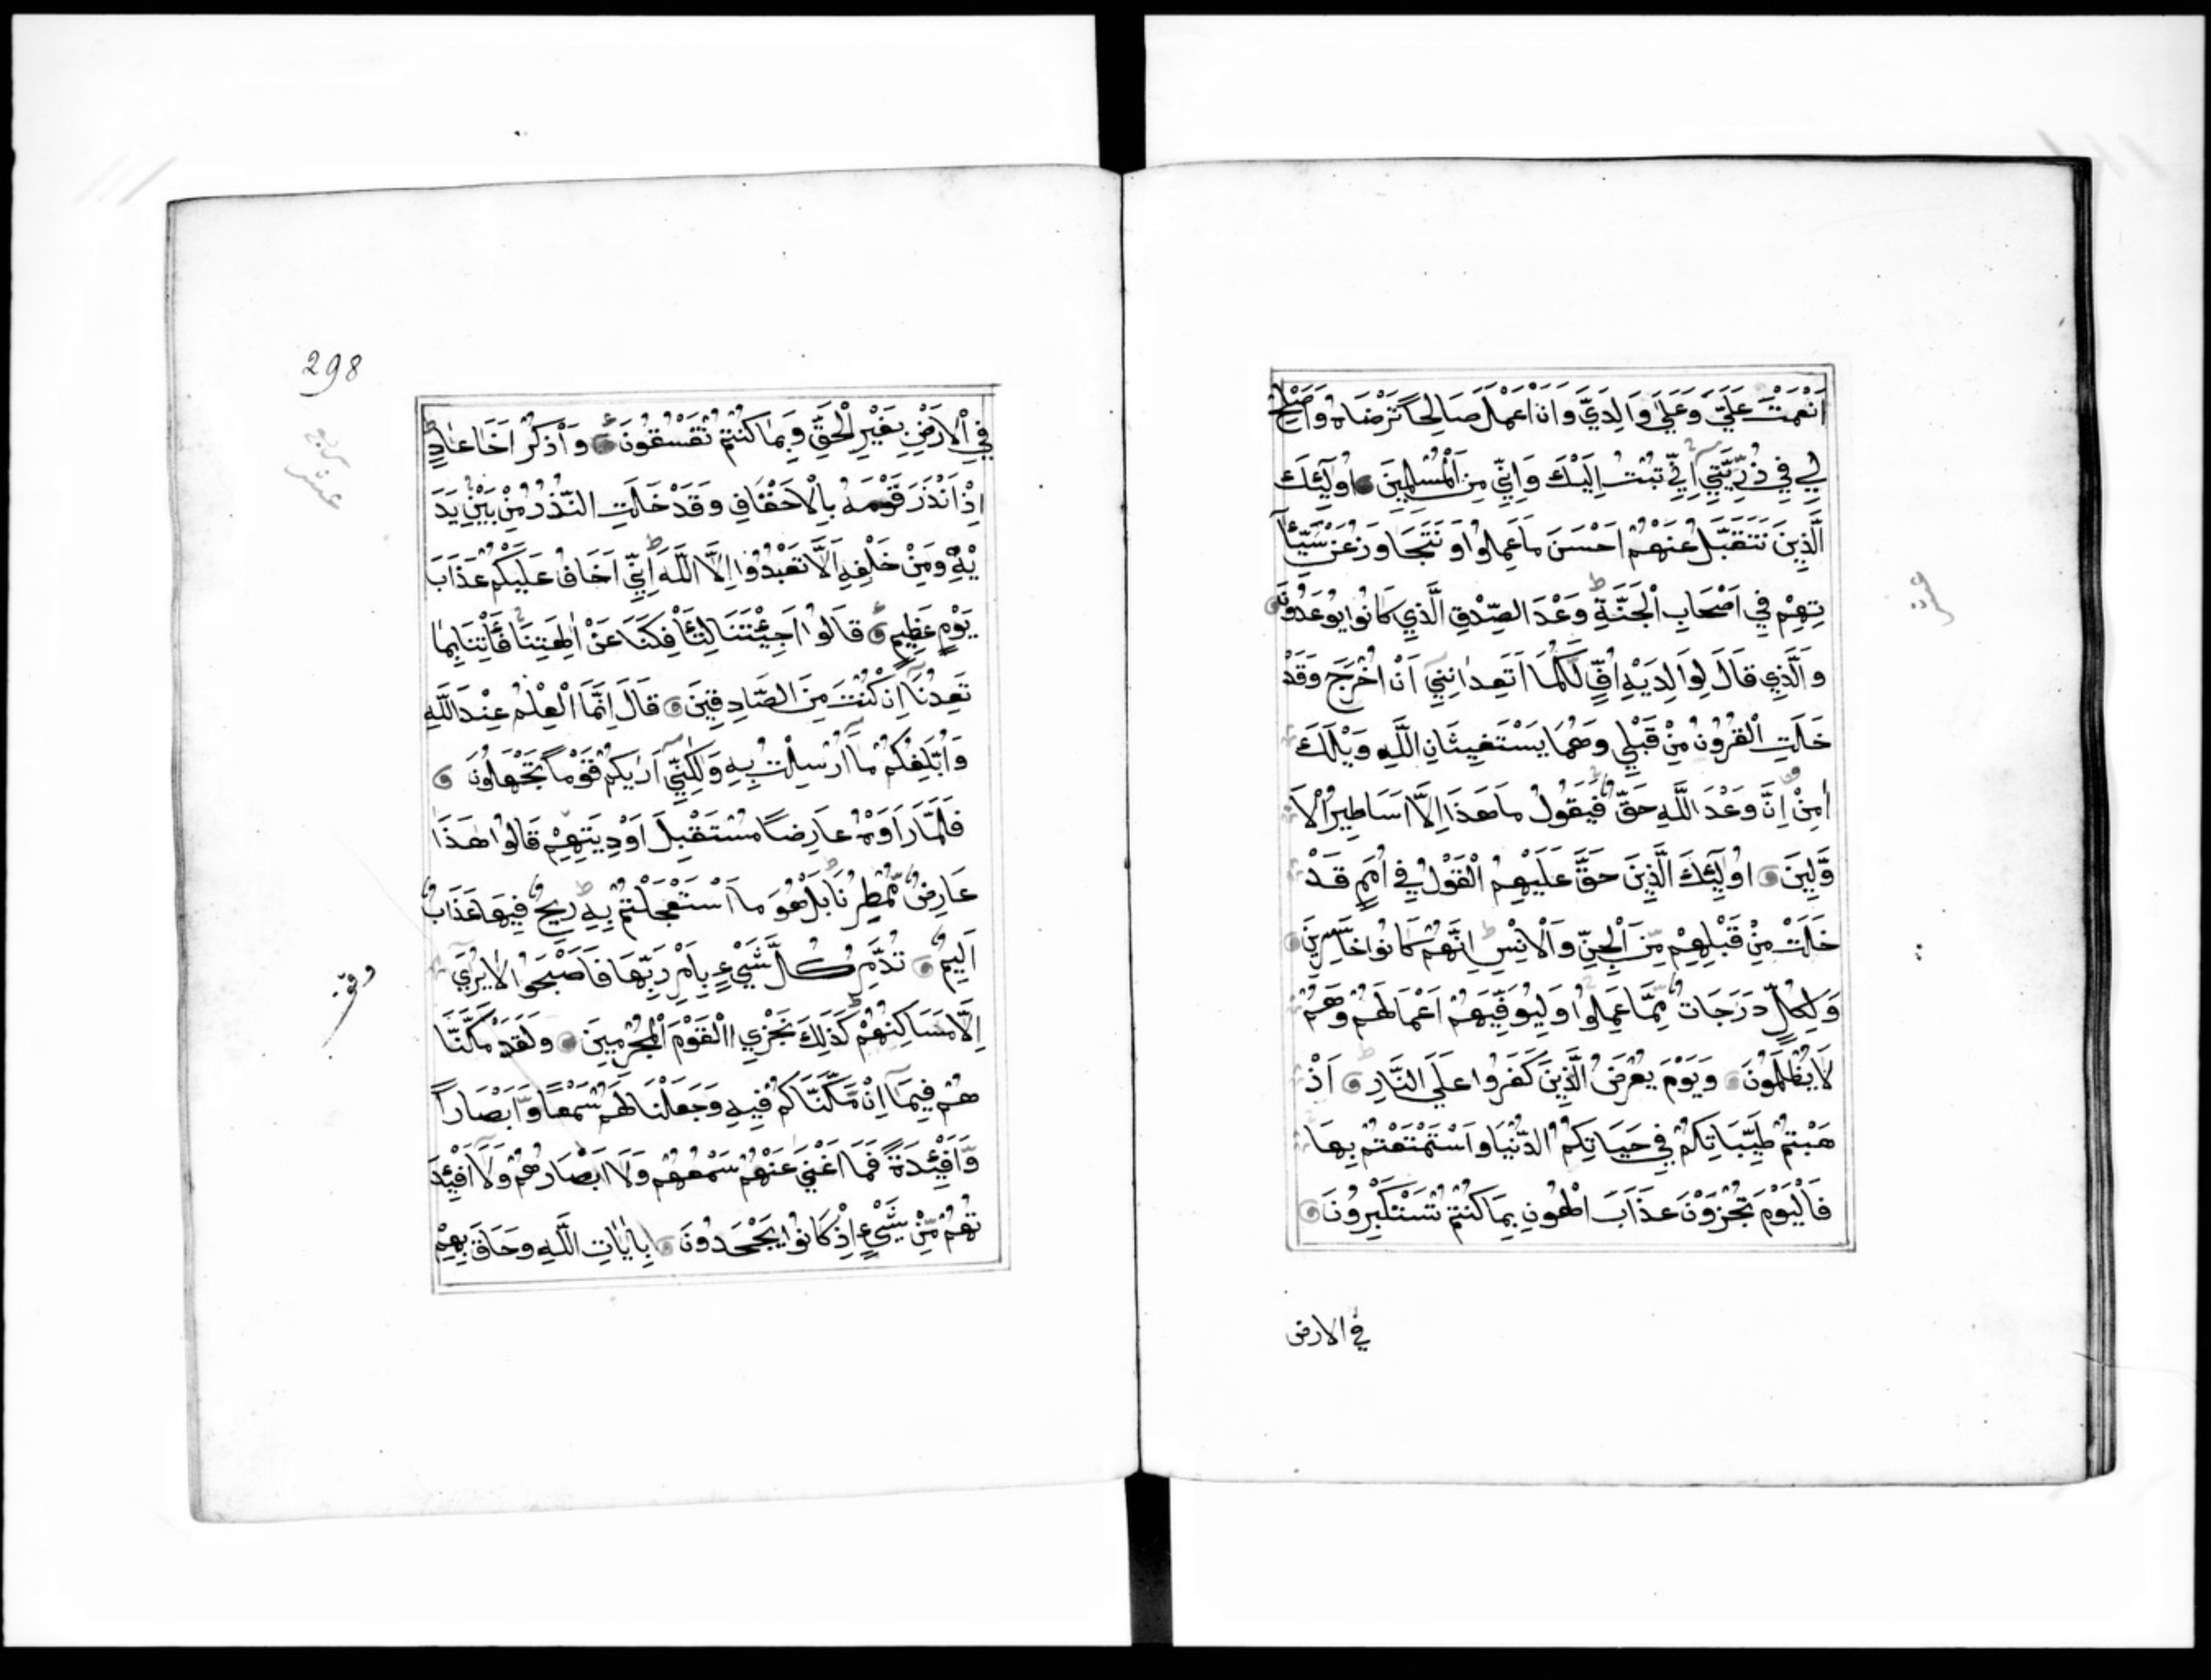 اَنْعَمْتَ عَلَيَّ وَعَلٰي وَالِدَيَّ وَاَنْ اَعْمَلَ صَالِحًا تَرْضَاهُ وَاَصْلِحْ
لِي فِي ذُرِّيَّتِي اِنِّي تُبْتُ اِلَيْكَ وَاِنِّي مِنَ الْمُسْلِمِينَ اُولٰٓئِكَ
الَّذِينَ نَتَقَبَّلُ عَنْهُمْ اَحْسَنَ مَا عَمِلُوا وَنَتَجَاوَزُ عَنْ سَيِّاٰ
تِهِمْ فِي اَصْحَابِ الْجَنَّةِ وَعْدَ الصِّدْقِ الَّذِي كَانُوا يُوعَدُونَ
وَالَّذِي قَالَ لِوَالِدَيْهِ اُفٍّ لَّكُمَا اَتَعِدَانِنِي اَنْ اُخْرَجَ وَقَدْ
خَلَتِ الْقُرُونُ مِنْ قَبْلِي وَهُمَا يَسْتَغِيثَانِ اللَّهَ وَيْلَكَ
اٰمِنْ اِنَّ وَعْدَ اللَّهِ حَقٌّ فَيَقُولُ مَا هَذَا اِلَّا اَسَاطِيرُ الْاَ
وَّلِينَ اُولٰٓئِكَ الَّذِينَ حَقَّ عَلَيْهِمُ الْقَوْلُ فِي اُمَمٍ قَدْ
خَلَتْ مِنْ قَبْلِهِمْ مِّنَ الْجِنِّ وَالْاِنْسِ اِنَّهُمْ كَانُوا خَاسِرِينَ
وَلِكُلٍّ دَرَجَاتٌ مِّمَّا عَمِلُوا وَلِيُوَفِّيَهُمْ اَعْمَالَهُمْ وَهُمْ
لَا يُظْلَمُونَ وَيَوْمَ يُعْرَضُ الَّذِينَ كَفَرُوا عَلَي النَّارِ اَذْ
هَبْتُمْ طَيِّبَاتِكُمْ فِي حَيَاتِكُمُ الدُّنْيَا وَاسْتَمْتَعْتُمْ بِهَا
فَالْيَوْمَ تُجْزَوْنَ عَذَابَ الْهُونِ بِمَا كُنْتُمْ تَسْتَكْبِرُونَ
في الارض
298
فِي الْاَرْضِ بِغَيْرِ الْحَقِّ وَبِمَا كُنْتُمْ تَفْسُقُونَ وَاذْكُرْ اَخَا عَادٍ
اِذْ اَنْذَرَ قَوْمَهُ بِالْاَحْقَافِ وَقَدْ خَلَتِ النُّذُرُ مِنْ بَيْنِ يَدَ
يْهِ وَمِنْ خَلْفِهِ اَلَّا تَعْبُدُوا اِلَّا اللَّهَ اِنِّي اَخَافُ عَلَيْكُمْ عَذَابَ
يَوْمٍ عَظِيمٍ قَالُوا اَجِئْتَنَا لِتَاْفِكَنَا عَنْ اٰلِهَتِنَا فَاْتِنَا بِمَا
تَعِدُنَا اِنْ كُنْتَ مِنَ الصَّادِقِينَ قَالَ اِنَّمَا الْعِلْمُ عِنْدَ اللَّهِ
وَاُبَلِّغُكُمْ مَّا اُرْسِلْتُ بِهِ وَلٰكِنِّي اَرٰيكُمْ قَوْمًا تَجْهَلُونَ
فَلَمَّا رَاَوْهُ عَارِضًا مُسْتَقْبِلَ اَوْدِيَتِهِمْ قَالُوا هٰذَا
عَارِضٌ مُّمْطِرُنَا بَلْ هُوَ مَا اسْتَعْجَلْتُمْ بِهِ رِيحٌ فِيهَا عَذَابٌ
اَلِيمٌ تُدَمِّرُ كُلَّ شَيْءٍ بِاَمْرِ رَبِّهَا فَاَصْبَحُوا لَا يُرٰي
اِلَّا مَسَاكِنُهُمْ كَذَلِكَ نَجْزِي الْقَوْمَ الْمُجْرِمِينَ وَلَقَدْ مَكَّنَّا
هُمْ فِيمَا اِنْ مَّكَّنَّاكُمْ فِيهِ وَجَعَلْنَا لَهُمْ سَمْعًا وَّاَبْصَارًا
وَّاَفْئِدَةً فَمَا اَغْنٰي عَنْهُمْ سَمْعُهُمْ وَلَا اَبْصَارُهُمْ وَلَا اَفْئِدَ
تُهُمْ مِّنْ شَيْءٍ اِذْ كَانُوا يَجْحَدُونَ بِاٰيَاتِ اللَّهِ وَحَاقَ بِهِمْ